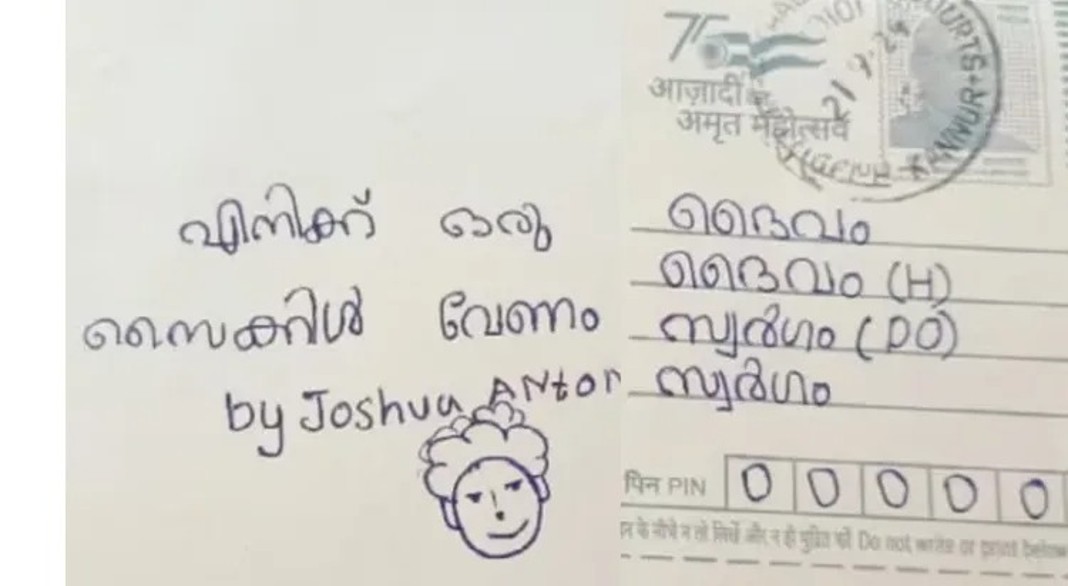 എനിക്ക് ഒരു
സൈക്കിൾ വേണം
by Joshua Anton
75
आज़ादी का
अमृत महोत्सव
COURTS
KANNUR
ദൈവം
ദൈവം (H)
സ്വർഗം (PO)
സ്വർഗം
पिन PIN 0 0 0 0 0
के नीचे न तो लिखें और न ही मुद्रित करें Do not write or print below